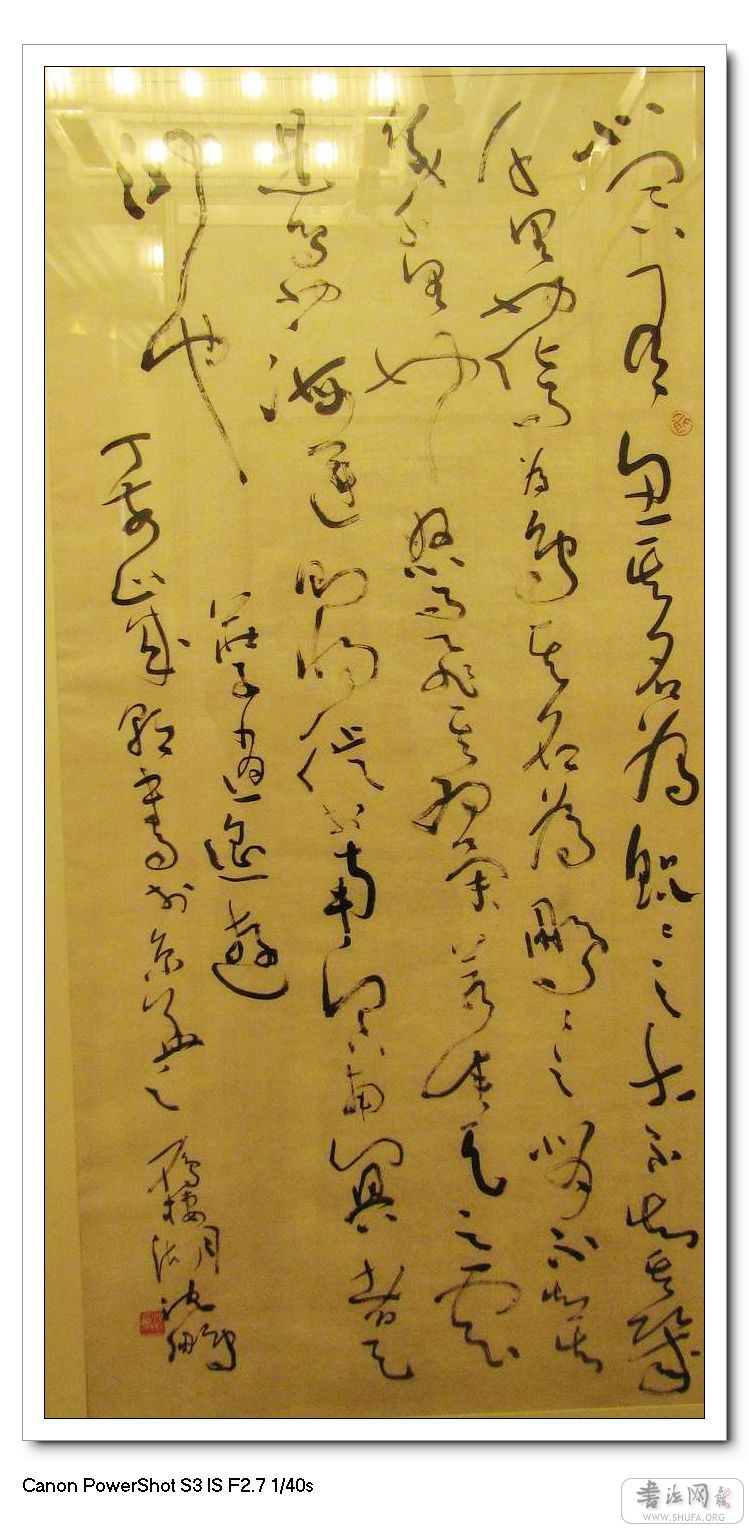 北冥有魚其名為鯤鯤之大不知其幾
千里也化而為鳥其名為鵬鵬之背不知其
幾千里也怒而飛其翼若垂天之雲
是鳥也海運則將徙於南冥南冥者天
池也
莊子逍遙遊
丁亥 歲 書於京華之 鴈棲湖 沈鵬
Canon PowerShot S3 IS F2.7 1/40s
书法网
WWW.SHUFA.ORG